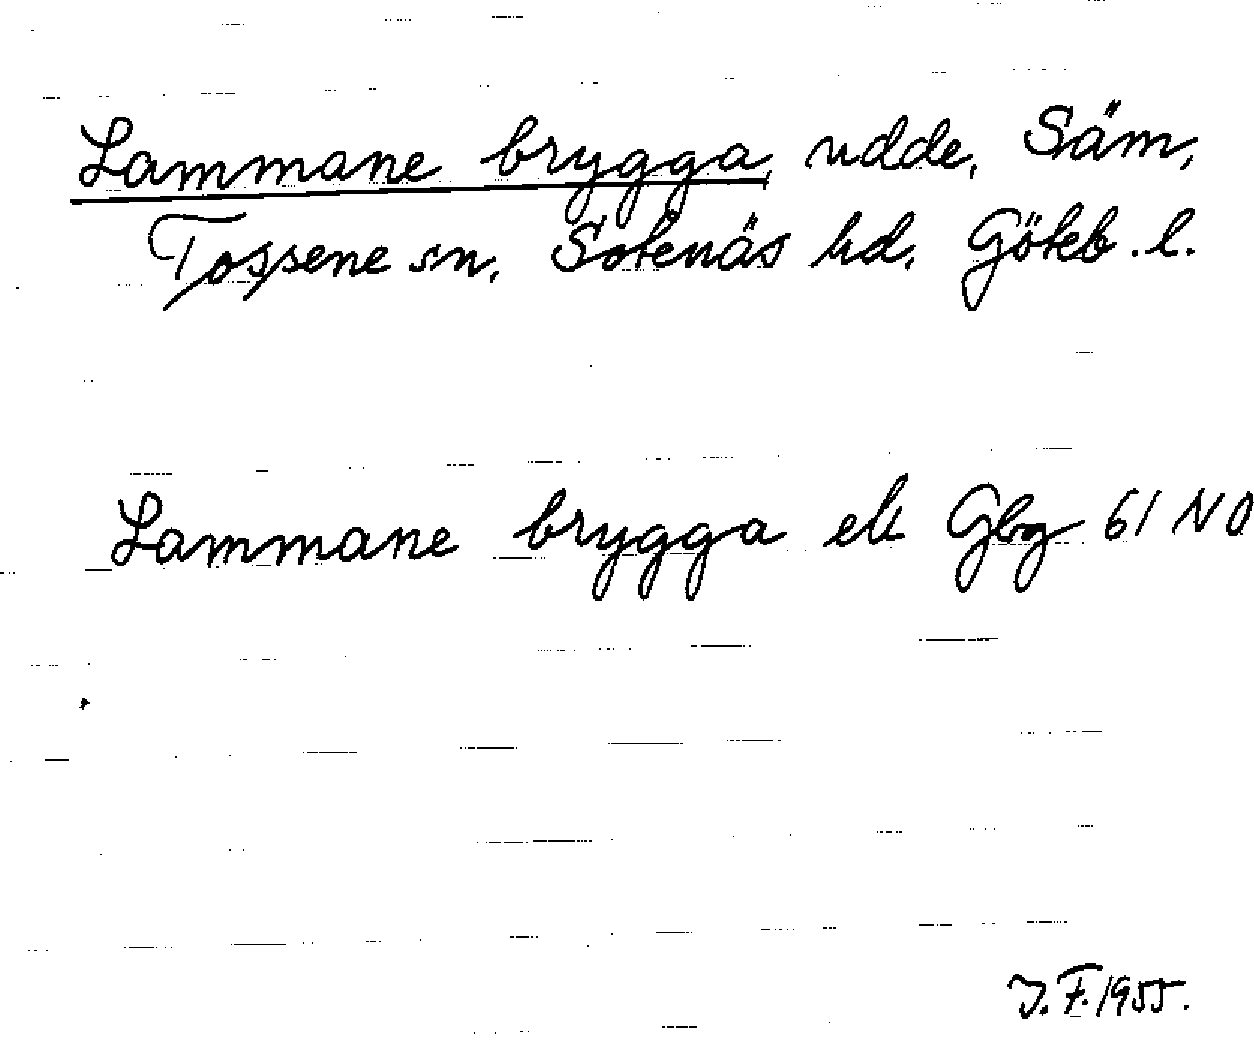 Lammane brygga, udde, Säm,
Tossene sn, Sotenäs hd, Göteb. l.
Lammane brygga ek Gbg 61 NO
J.F. 1955.